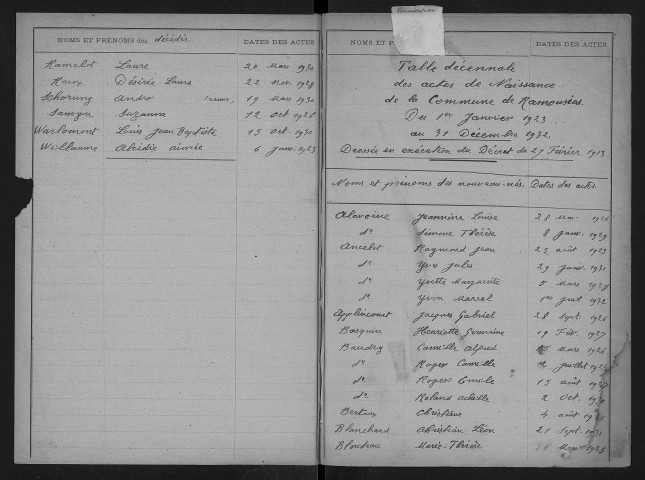 NOMS ET PRÉNOMS des décédés. DATES DES ACTES
Ramelot Laure 20 Mars 1930
Roux Désirée Laure 22 nov. 1928
Schorung Andro 19 Mars 1930
Samyn Suzanne 12 Oct 1928
Warlomont Louis Jean Baptiste 15 Oct 1930
Willaume aimée 6 janv. 1923
Ramousies
NOMS ET P DATES DES ACTES
Table décennale
des actes de Naissance
de la Commune de Ramousies.
Du 1er Janvier 1923
au 31 Décembre 1932.
Dressée en exécution du Décret du 27 Février 1913
Noms et prénoms des nouveau-nés. Dates des actes
Alavoine Jeannine Louise 28 Mai
do Simone Thérèse 8 janv. 1929
Ancelot Raymond Jean 25 août 1923
do Yves Jules 29 janv. 1930
do Yvette Marguerite 5 Mars 1928
do Yvon Marcel 1er juil 1932
Applincourt Jacques Gabriel 28 Sept. 1926
Basquin Henriette Germaine 19 Fév. 1927
Baudry Camille Alfred 15 Mars 1926
do Roger Camille 2 juillet
do Roger Emile 13 août
do Roland Achille 2 Oct.
Bertaux Christiane 4 août
Blanchard Christian Léon 21 Sept.
Marie-Thérèse 1925